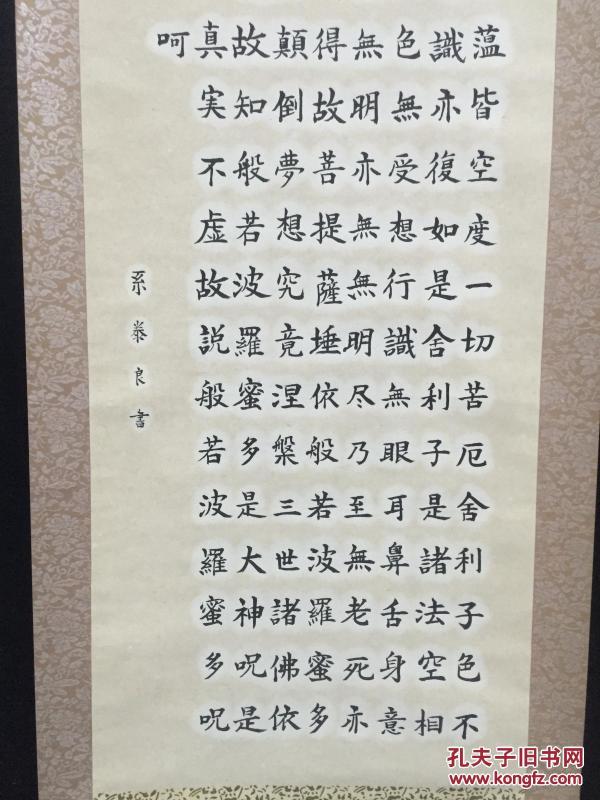 薀皆空度一切苦厄舍利子色不
識亦復如是舍利子是諸法空相
色無受想行識無眼耳鼻舌身意
無明亦無無明尽乃至無老死亦
得故菩提薩埵依般若波羅蜜多
顛倒夢想究竟涅槃三世諸佛依
故知般若波羅蜜多是大神呪是
真実不虚故説般若波羅蜜多呪
呵
良書
孔夫子旧书网
www.kongfz.com